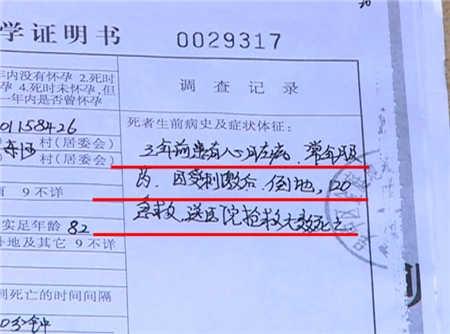 学证明书
0029317
年内没有怀孕 2.死时
孕 4.死时未怀孕,但
一年内是否曾怀孕
调 查 记 录
01158426
村(居委会)
村(居委会)
死者生前病史及症状体征:
三年前患有心脏病,常年服
药,因受刺激后,倒地,120
急救,送医院抢救无效死亡
实足年龄 82
外地及其它 9 不详
9 不详
到死亡的时间间隔
0分钟